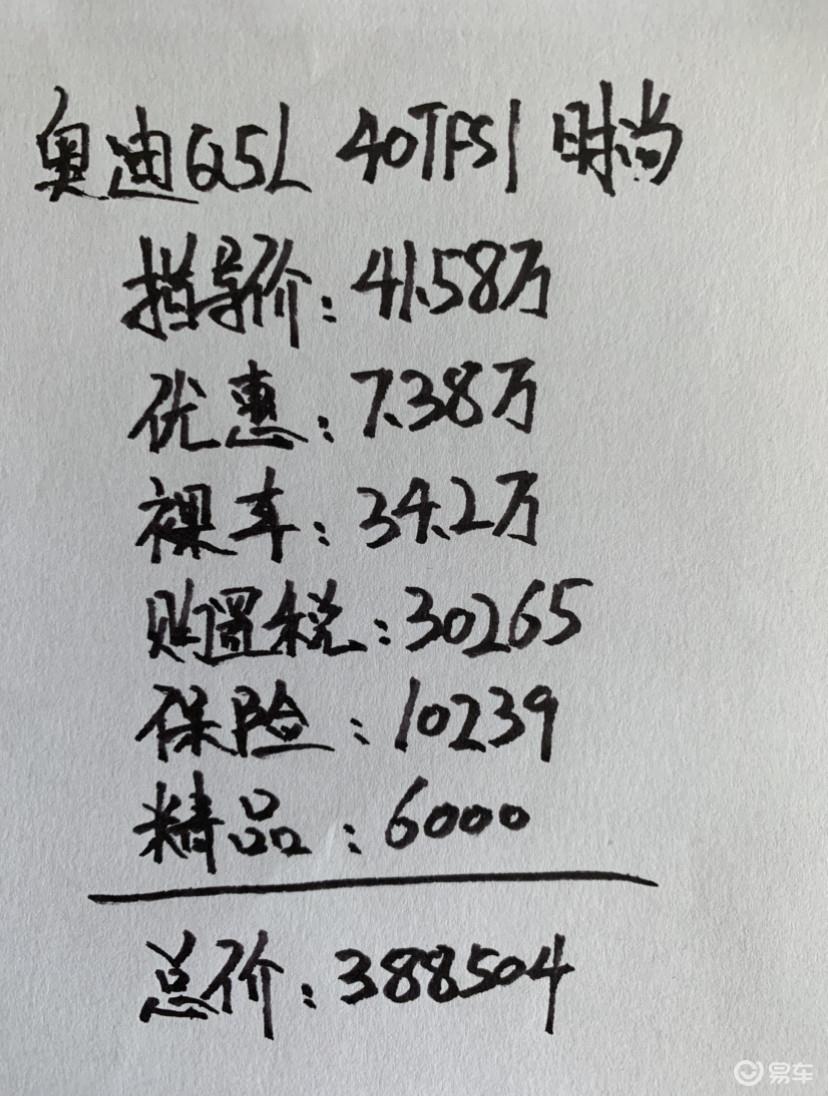 奥迪Q5L 40TFSI 时尚
指导价:41.58万
优惠:7.38万
裸车:34.2万
购置税:30265
保险:10239
精品:6000
总价:388504
易车